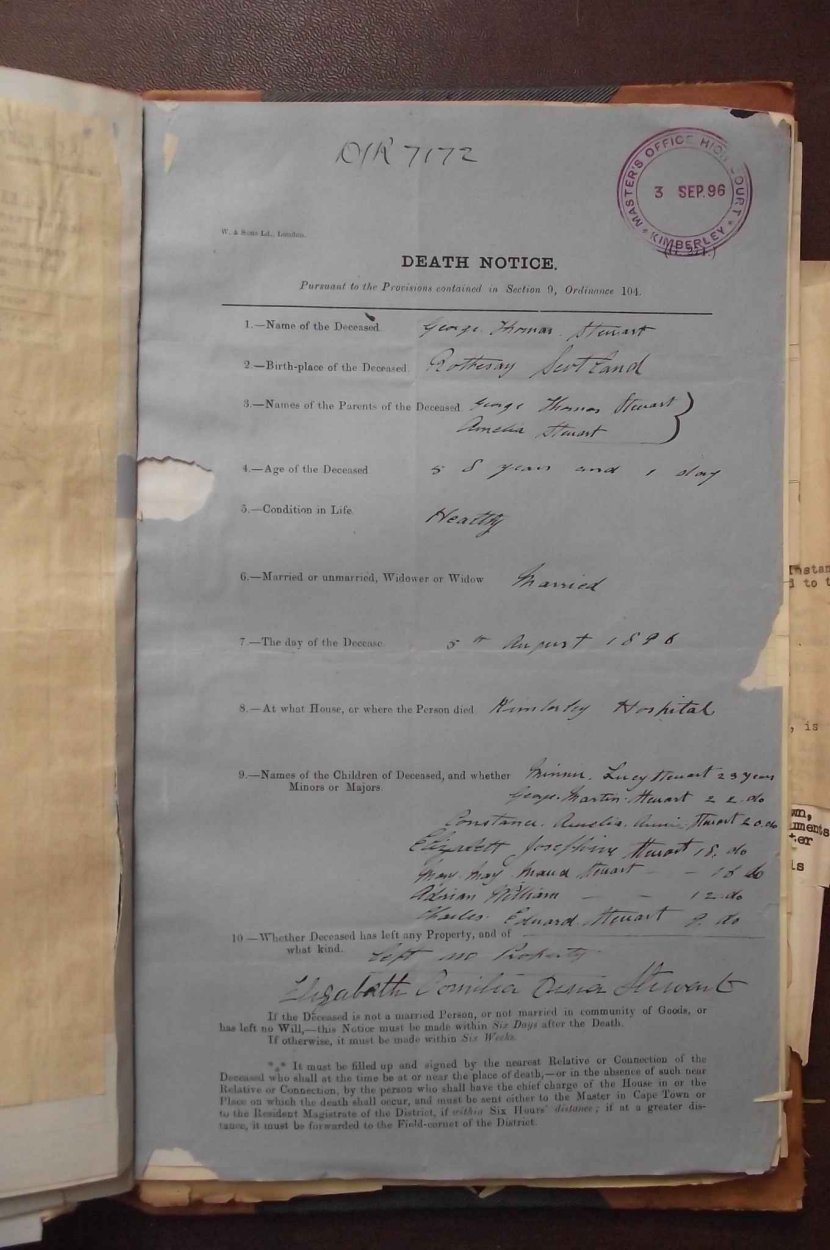 D/R 7172
MASTER'S OFFICE HIGH COURT
3 SEP. 96
KIMBERLEY
W. & Sons Ld., London.
DEATH NOTICE,
Pursuant to the Provisions contained in Section 9, Ordinance 104.
1.—Name of the Deceased George Thomas Stewart
2.—Birth-place of the Deceased Rothesay Scotland
3.—Names of the Parents of the Deceased George Thomas Stewart
Amelia Stewart
4.—Age of the Deceased 58 years and 1 day
5.—Condition in Life. Healthy
6.—Married or unmarried, Widower or Widow Married
7.—The day of the Decease. 5th August 1896
8.—At what House, or where the Person died Kimberley Hospital
9.—Names of the Children of Deceased, and whether Lucy Stewart 23 years
Minors or Majors.
George Martin Stewart 22 do
Constance Amelia Annie Stewart 20 do
Elizabeth Josephine Stewart 18 do
May Maud Stewart - - 16 do
Adrian William - - 12 do
Charles Edward Stewart 9 do
10—Whether Deceased has left any Property, and of
what kind. Left no Property
Elizabeth Stewart
If the Deceased is not a married Person, or not married in community of Goods, or
has left no Will,—this Notice must be made within Six Days after the Death.
If otherwise, it must be made within Six Weeks.
*⁎* It must be filled up and signed by the nearest Relative or Connection of the
Deceased who shall at the time be at or near the place of death,—or in the absence of such near
Relative or Connection, by the person who shall have the chief charge of the House in or the
Place on which the death shall occur, and must be sent either to the Master in Cape Town or
to the Resident Magistrate of the District, if within Six Hours' distance; if at a greater dis-
tance, it must be forwarded to the Field-cornet of the District.